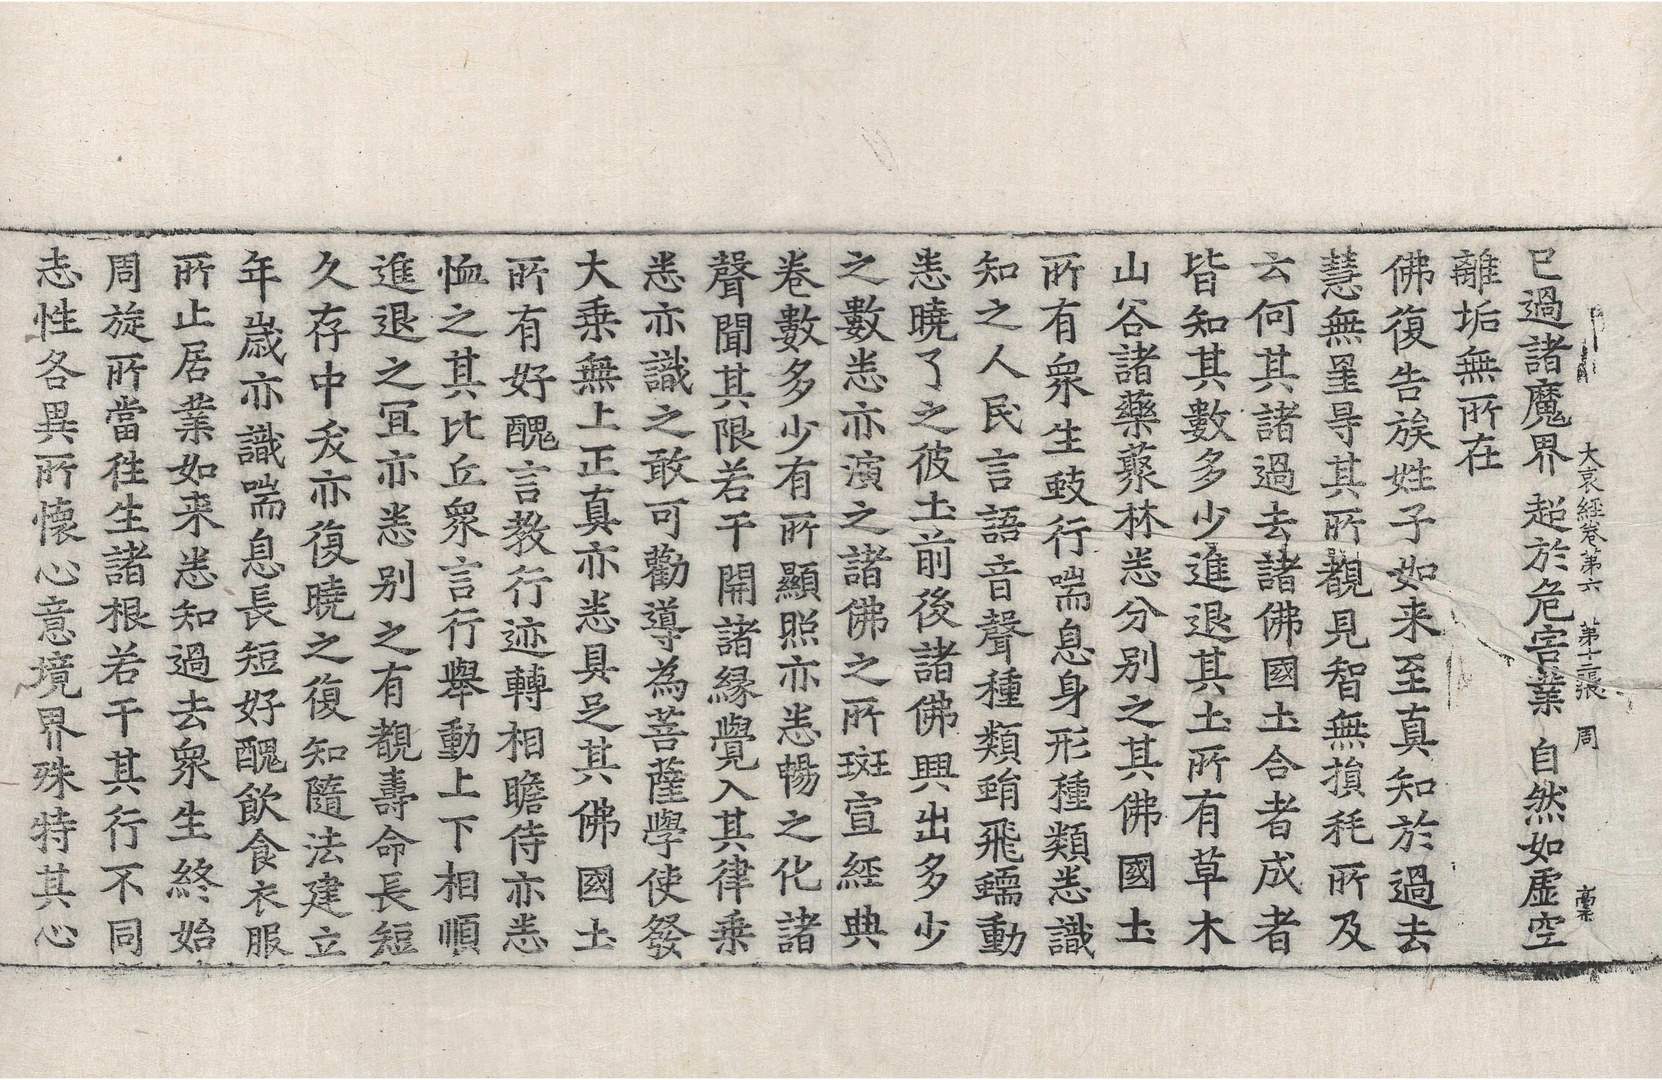 大哀經卷第六　第十二張　周　稾
已過諸魔界　起於危害業　自然如虛空
離垢無所在
佛復告族姓子如来至真知於過去
慧無罣㝵其所覩見智無損耗所及
云何其諸過去諸佛國土合者成者
皆知其數多少進退其土所有草木
山谷諸藥藂林悉分别之其佛國土
所有衆生蚑行喘息身形種類悉識
知之人民言語音聲種類蜎飛蠕動
悉曉了之彼土前後諸佛興出多少
之數悉亦演之諸佛之所班宣經典
卷數多少有所顯照亦悉暢之化諸
聲聞其限若干開諸縁覺入其律乗
悉亦識之敢可勸導為菩薩學使發
大乗無上正真亦悉具足其佛國土
所有好醜言教行迹轉相瞻侍亦悉
恤之其比丘衆言行舉動上下相順
進退之冝亦悉别之有覩壽命長短
久存中夭亦復曉之復知隨法建立
年歲亦識喘息長短好醜飲食衣服
所止居業如来悉知過去衆生終始
周旋所當徃生諸根若干其行不同
志性各異所懷心意境界殊特其心